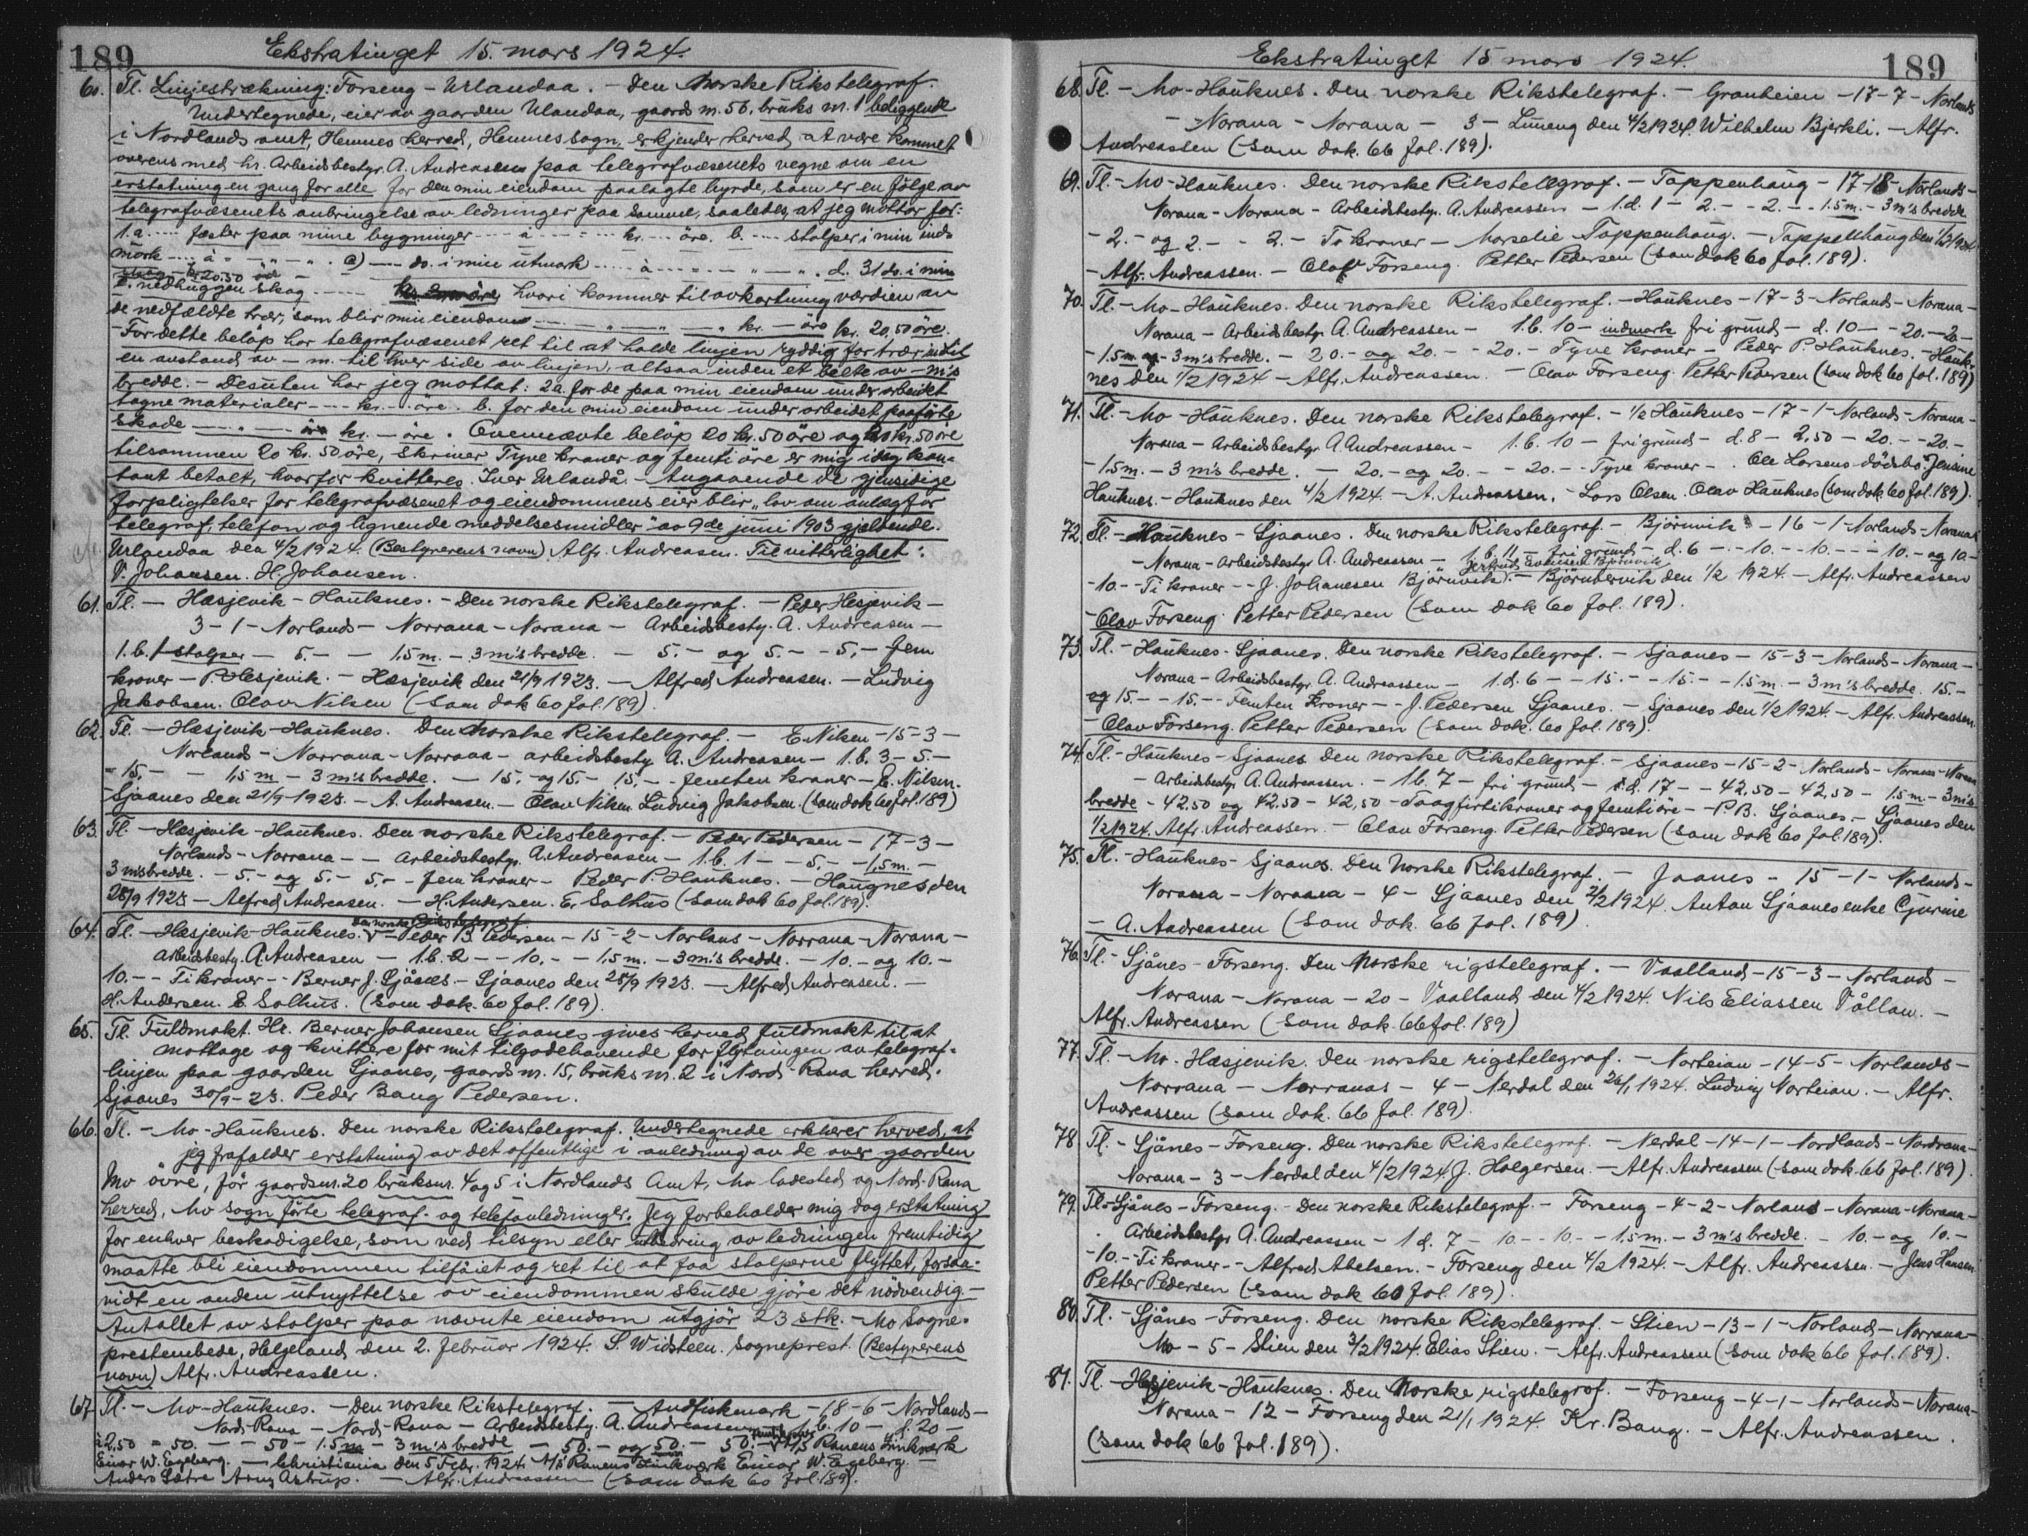 189
Ekstratinget 15. mars 1924.
60. Tl. Linjestrækning: Forseng - Urlandaa. - Den Norske Rikstelegraf.
Undertegnede, eier av gaarden Ulandaa, gaards nr. 56, bruks nr. 1 beliggende
i Nordlands amt, Hemnes herred, Hemnes sogn, erkjender herved at være kommet
overens med hr. Arbeidsbestyr. A. Andreasen paa telegrafvæsenets vegne om en
erstatning en gang for alle for den min eiendom paalagte byrde, som er en følge av
telegrafvæsenets anbringelse av ledninger paa samme, saaledes, at jeg mottar for:
1. a ---- fæster paa mine bygninger --- à --- kr. -- öre. b. --- stolper i min ind-
mark --- à - " - " - c) --- do. i min utmark --- à --- " - " - d. 31 do. i min
skog - kr 20.50
e. nedhuggen skog ---- hvori kommer til avkortning værdien av
de nedfældte trær, som blir min eiendom --- " --- " - kr. - öre kr. 20,50 öre.
- For dette beløp har telegrafvæsenet ret til at holde linjen ryddig for trær indtil
en avstand av - m. til hver side av linjen, altsaa inden et belte av - m's
bredde. - Desuten har jeg mottat: 2a. for de paa min eiendom under arbeidet
tagne materialer --- kr. -- öre. b. for den min eiendom under arbeidet paaførte
skade --- " --- kr. - öre. Ovennævnte beløp 20 kr. 50 öre og 20 kr. 50 öre
tilsammen 20 kr. 50 öre, skriver Tyve kroner og femti öre er mig idag kon-
tant betalt, hvorfor kvitteres. Iver Urlandå. - Angaaende de gjensidige
forpligtelser for telegrafvæsenet og eiendommens eier blir „lov om anlæg for
telegraf, telefon og lignende meddelsesmidler" av 9de juni 1903 gjeldende.
Urlandaa den 4/2 1924. (Bestyrerens navn) Alfr. Andreasen. Til vitterlighet:
V. Johansen. H. Johansen.
61. Tl. - Hæsjevik - Hauknes. - Den norske Rikstelegraf. - Peder Hesjevik -
3 - 1 - Norlands - Norrana - Norana - Arbeidsbesty. A. Andreasen -
1. b. 1 stolper - 5. - - 1,5 m. - 3 m's bredde. - 5. - og 5. - - 5, - Fem
kroner - P. Hesjevik. - Hæsjevik den 21/9 1923. - Alfred Andreasen. - Ludvig
Jakobsen. Olav Nilsen (som dok 60 fol. 189).
62. Tl. - Hæsjevik - Hauknes. Den Norske Rikstelegraf. - E. Nilsen - 15 - 3 -
Norland - Norrana - Norrana - arbeidsbesty A. Andreasen - 1. b. 3 - 5. -
- 15, - - 1,5 m - 3 m's bredde. - 15, - og 15, - 15, - - femten kroner - E. Nilsen.
Sjaanes den 21/9 - 1923. - A. Andreasen. - Olav Nilsen. Ludvig Jakobsen. (som dok 60 fol. 189)
63. Tl. - Hæsjevik - Hauknes. Den norske Rikstelegraf. - Peder Pedersen - 17 - 3 -
Norlands - Norrana - - Arbeidsbestyr. A. Andreasen - 1. b. 1 - - 5. - - 1,5 m. -
3 m's bredde. - 5. - og 5. - 5, - - fem kroner - Peder P. Hauknes. - Haugnes den
28/9 1923 - Alfred Andreasen. - H. Andersen. E. Solhus (som dok 60 fol. 189).
64. Tl. - Hæsjevik - Hauknes. Den norske Rikstelegraf - Peder B. Pedersen - 15 - 2 - Norlans - Norrana - Norana -
Arbeidsbesty. A. Andreasen - 1. b. 2 - - 10. - - 1,5 m. - 3 m's bredde. - 10. - og 10. -
10. - - Ti kroner - - Berner J. Sjånes - Sjaanes den 28/9 1923. - Alfred Andreasen. -
H. Andersen. E. Solhus. (som dok. 60 fol. 189).
65. Tl. Fuldmakt. Hr. Berner Johansen Sjaanes gives herved fuldmakt til at
mottage og kvittere for mit tilgodehavende for flytningen av telegraf-
linjen paa gaarden Sjaanes, gaards nr. 15, bruks nr. 2 i Nord-Rana herred.
Sjaanes 30/9 - 23. Peder Bang Pedersen.
66. Tl. - Mo - Hauknes. Den norske Rikstelegraf. Undertegnede erklærer herved, at
jeg frafalder erstatning av det offentlige i anledning av de over gaarden
Mo övre, för gaardsnr. 20 bruksnr. 4 og 5 i Nordlands Amt, Mo ladested og Nord-Rana
herred, Mo sogn förte telegraf- og telefonledninger. Jeg forbeholder mig dog erstatning
for enhver beskadigelse, som ved tilsyn eller utbedring av ledningen fremtidig
maatte bli eiendommen tilföiet og ret til at faa stolperne flyttet, forsaa-
vidt en anden utnyttelse av eiendommen skulde gjöre det nödvendig -
Antallet av stolper paa nævnte eiendom utgjör 23 stk. - Mo Sogne-
prestembede, Helgeland den 2. februar 1924. S. Widsteen. sogneprest. (Bestyrerens
navn) Alfr. Andreassen.
67. Tl. - Mo - Hauknes. - Den norske Rikstelegraf. - Andfiskmark - 18 - 6 - Nordlands -
Nord-Rana - Nord-Rana - Arbeidsbesty. A. Andreassen - 1. b. 10 - d. 20 -
à 2,50 = 50. - - 50 - 1.5 m - 3 m's bredde - 50. - og 50. - 50. - A/S Ranens Zinkværk
Einar W. Egeberg. - Christiania den 5 Febr. 1924. A/S Ranens Zinkværk Einar W. Egeberg. -
Anders Sætre Arny Astrup. - Alfr. Andreassen (som dok 60 fol. 189).
Ekstratinget 15 mars 1924.
189
68. Tl. - Mo - Hauknes. Den norske Rikstelegraf. - Granheien - 17 - 7 - Norlands
- Norana - Norana - 3 - Lineng den 4/2 1924. Wilhelm Bjerkli. - Alfr.
Andreassen (som dok. 66 fol. 189).
69. Tl. - Mo - Hauknes. Den norske Rikstelegraf. - Tappenhaug - 17 - 18 - Norlands -
Norana - Norana - Arbeidsbestyr. A. Andreassen - 1. d. 1 - 2. - - 2. - - 1.5 m. - 3 m's bredde
- 2. - og 2. - - 2. - To kroner - Marselie Tappenhaug. - Tappelhaug den 1/2 1924
- Alfr. Andreassen. - Olaf Forseng. Petter Pedersen (som dok 60 fol. 189).
70. Tl. - Mo - Hauknes. Den norske Rikstelegraf. - Hauknes - 17 - 3 - Norlands - Norana -
Norana - Arbeidsbestyr A. Andreassen - 1. b. 10 - indmark fri grund - d. 10 - - 20. - 20 -
- 1.5 m. og - 3 m's bredde. - 20. - og 20. - - 20. - Tyve kroner - Peder P. Hauknes. - Hauk-
nes den 1/2 1924 - Alfr. Andreassen. - Olav Forseng. Petter Pedersen (som dok 60 fol. 189)
71. Tl. - Mo - Hauknes. Den norske Rikstelegraf. - 1/2 Hauknes - 17 - 1 - Norlands - Norana -
Norana - Arbeidsbestyr A. Andreassen - 1. b. 10 - fri grund - d. 8 - 2,50 - 20. - - 20 -
- 1.5 m. - 3 m's bredde. - 20. - og 20. - - 20. - - Tyve kroner - . Ole Larsens dödsbo. Jensine
Hauknes. - Hauknes den 4/2 1924. - A. Andreassen. - Lars Olsen. Olav Hauknes (som dok 60 fol. 189).
72. Tl. - Hauknes - Sjaanes. Den norske Rikstelegraf. - Björnvik - 16 - 1 - Norlands - Norana
- Norana - Arbeidsbestyr A. Andreassen - 1. b. 11 - fri grund - d. 6 - - 10. - - 10. - - - 10. - og 10 -
- 10. - Ti kroner - - J. Johansen Björnvik. - Björnbervik den 1/2 1924. - Alfr. Andreassen
- Olav Forseng. Petter Pedersen (som dok 60 fol. 189).
73. Tl. - Hauknes - Sjaanes. Den norske Rikstelegraf. - Sjaanes - 15 - 3 - Norlands - Norana -
Norana - Arbeidsbestyr A. Andreassen - 1. d. 6 - - 15. - - 15. - - 1.5 m. - 3 m's bredde. 15. -
og 15. - - 15. - - Femten Kroner - - J. Pedersen Sjaanes. - Sjaanes den 1/2 1924. - Alfr. Andreassen.
- Olav Forseng. Petter Pedersen (som dok. 60 fol. 189).
74. Tl. - Hauknes - Sjaanes. Den norske Rikstelegraf. - Sjaanes - 15 - 2 - Norlands - Norana - Norana
- Arbeidsbestyr A. Andreassen. - 1 b. 7 - fri grund - d. 17 - - 42,50 - 42,50 - 1.5 m. - 3 m's
bredde - 42,50 og 42,50 - 42,50 - To og firti kroner og femti öre - - P. B. Sjaanes. - Sjaanes den
1/2 1924. Alfr. Andreassen. - Olav Forseng. Petter Pedersen (som dok 60 fol. 189).
75. Tl. - Hauknes - Sjaanes. Den Norske Rikstelegraf. - Jaanes - 15 - 1 - Norlands -
Norana - Noranea - 4 - Sjaanes den 2/2 1924. Anton Sjaanes enke Gjurine
- A. Andreassen (som dok. 66 fol. 189)
76. Tl. - Sjånes - Forseng. Den Norske rigstelegraf. - Vaalland - 15 - 3 - Norland -
Norana - Norana - 20 - Vaalland den 4/2 1924. Nils Eliassen Vållan. -
Alfr. Andreassen (som dok. 66 fol. 189)
77. Tl. - Mo - Hæsjevik. Den norske rigstelegraf. - Norteian - 14 - 5 - Norlands -
Norrana - Norranas - 4 - Nerdal den 26/1 1924. Ludvig Norteian. - Alfr.
Andreassen (som dok. 66 fol. 189).
78. Tl. - Sjånes - Forseng. Den norske Rikstelegraf. - Nerdal - 14 - 1 - Nordlands - Nordrana -
Norana - 3 - Nerdal den 4/2 1924. J. Holgersen. - Alfr. Andreassen (som dok. 66 fol. 189).
79. Tl. - Sjånes - Forseng. - Den norske Rikstelegraf. - Forseng - 4 - 2 - Norlans - Norana - Norana -
Arbeidsbestyr A. Andreassen - 1 d. 7 - 10. - - 10. - - 1.5 m. - 3 m's bredde. - 10. - og 10. -
- 10. - - Ti kroner. - - Alfred Abelsen. - Forseng den 4/2 1924. - Alfr. Andreassen. - Jens Hansen
Petter Pedersen (som dok 60 fol. 189).
80. Tl. - Sjånes - Forseng. Den norske Rikstelegraf. - Stien - 13 - 1 - Norland - Norrana -
Mo - 5 - Stien den 3/2 1924. Elias Stien. - Alfr. Andreassen (som dok 66 fol. 189).
81. Tl. - Hesjevik - Hauknes. Den Norske rigstelegraf. - Forseng - 4 - 1 - Norlands - Norana -
Norana - 12 - Forseng den 21/1 1924. Kr. Bang. - Alfr. Andreassen.
(som dok 66 fol. 189).